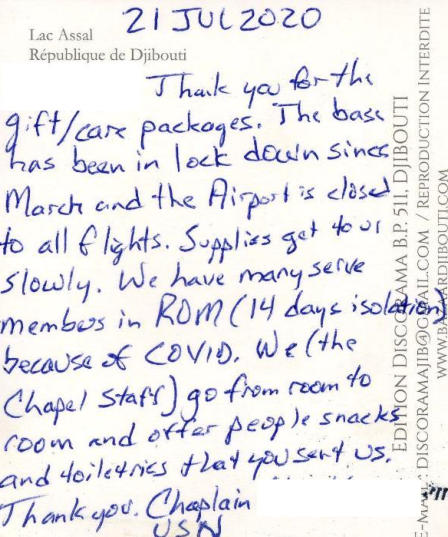 21 JUL 2020
Lac Assal
République de Djibouti
Thank you for the
gift/care packages. The base
has been in lock down since
March and the Airport is closed
to all flights. Supplies get to us
slowly. We have many serve
members in ROM (14 days isolation)
because of COVID. We (the
Chapel Staff) go from room to
room and offer people snacks
and toiletries that you sent us.
Thank you. Chaplain
USN
EDITION DISCORAMA B.P. 511, DJIBOUTI
DISCORAMAJIB@GMAIL.COM / REPRODUCTION INTERDITE